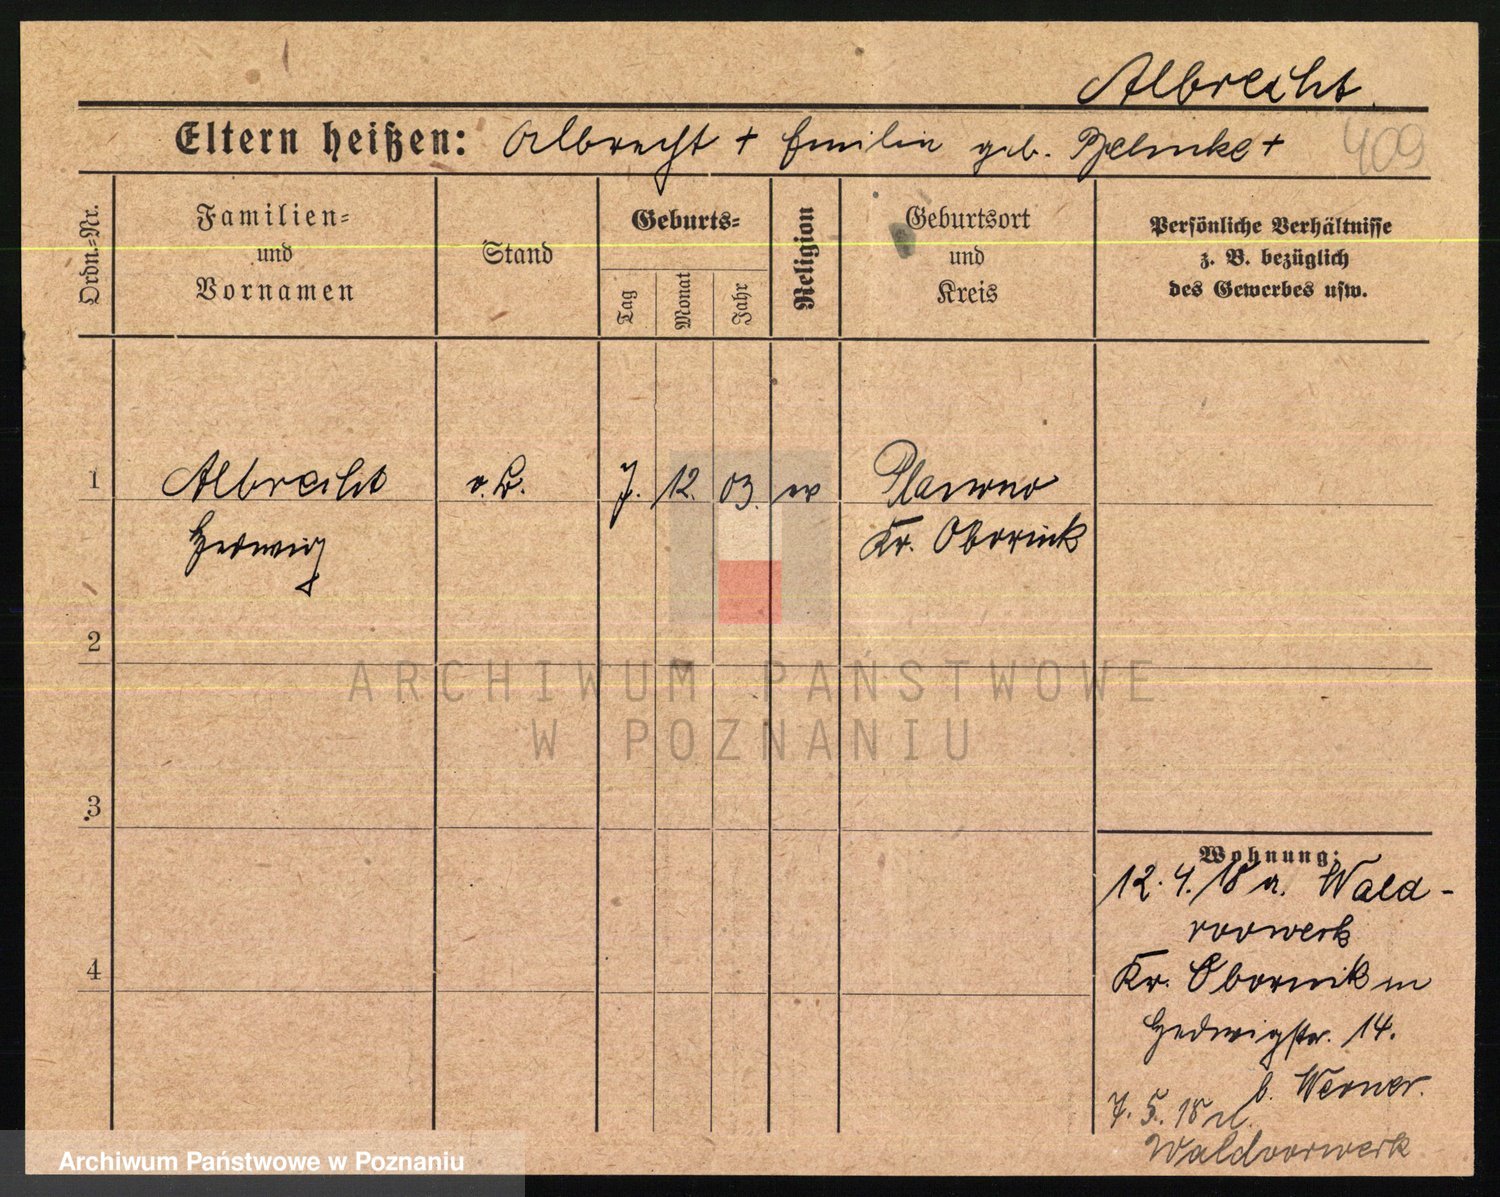 Albrecht.
Eltern heißen: Albrecht + Emilie geb. +
409
Ordn.=Nr.
Familien=
und
Vornamen
Stand
Geburts=
Tag
Monat
Jahr
Religion
Geburtsort
und
Kreis
Persönliche Verhältnisse
z. B. bezüglich
des Gewerbes usw.
1
Albrecht
Hedwig
o. B.
7. 12. 03. ev
Kr. Obornik
2
3
4
Wohnung:
12. 4. 18 a. Wald-
vorwerk
Kr. Obornik in
Hedwigstr. 14.
b. Werner.
7. 5. 18 n.
Waldvorwerk
ARCHIWUM PAŃSTWOWE
W POZNANIU
Archiwum Państwowe w Poznaniu